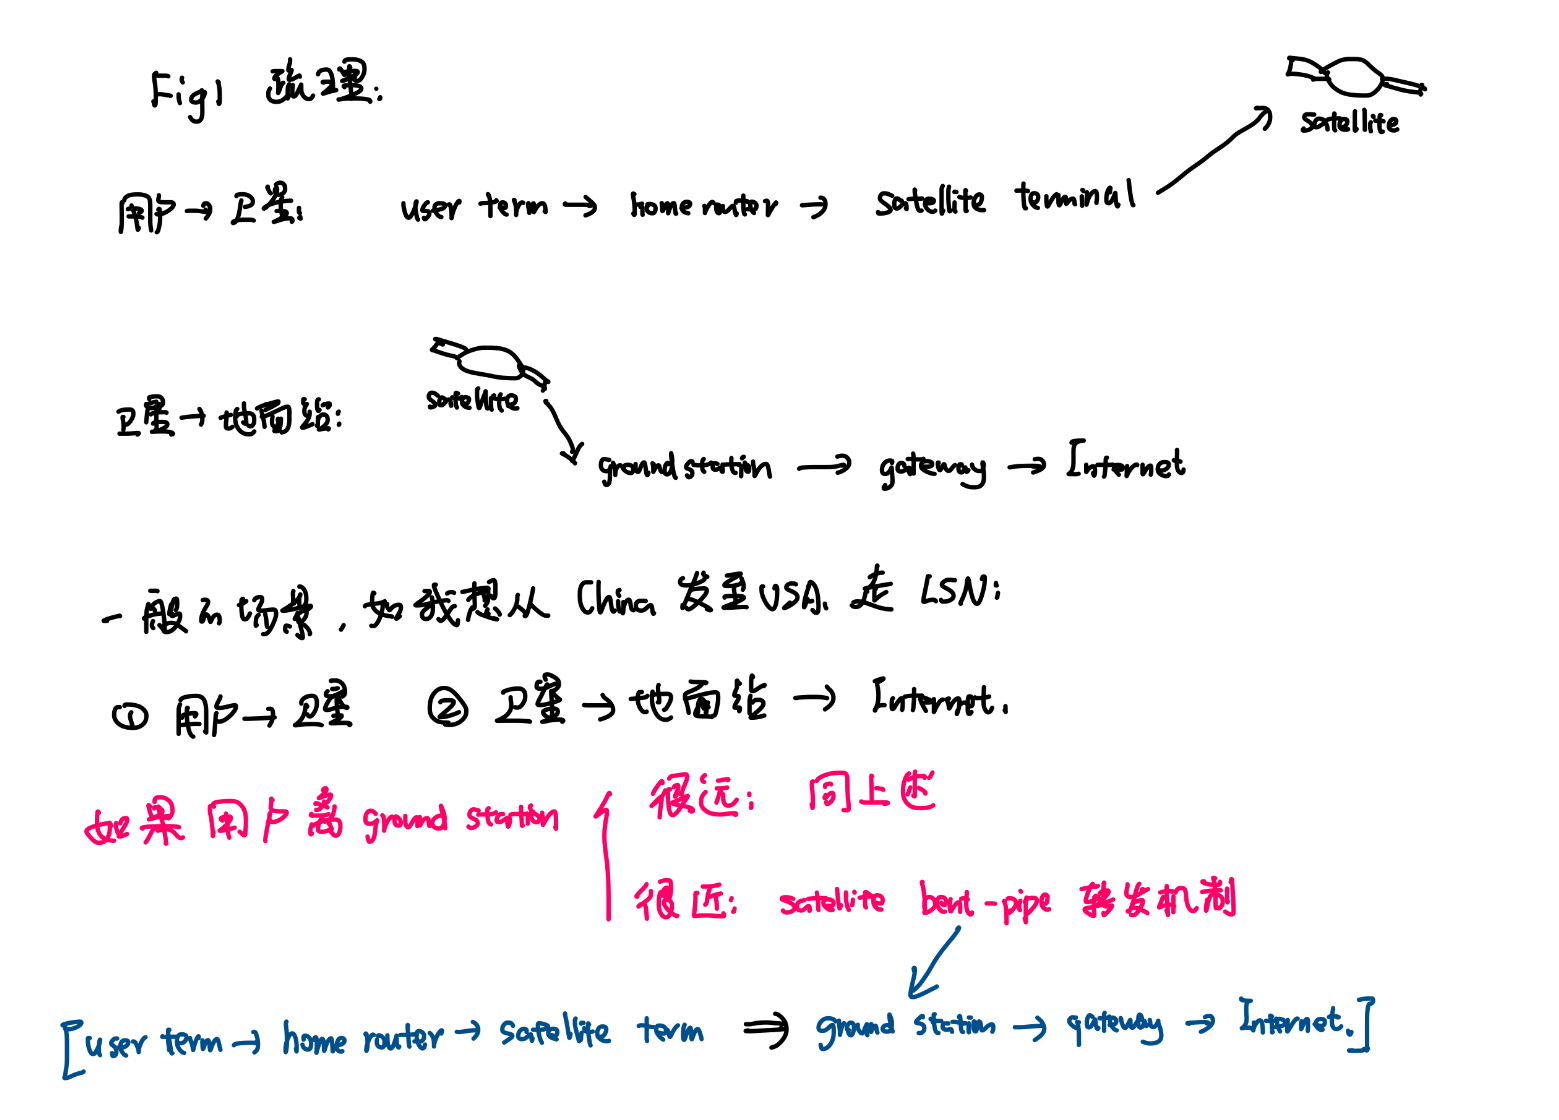 Fig1 疏理:
satellite
用户→卫星: user term → home router → satellite terminal
satellite
卫星→地面站:
ground station → gateway → Internet
一般的场景, 如我想从 China 发至USA, 走 LSN:
① 用户→卫星 ② 卫星→地面站 → Internet.
如果用户离 ground station
很远: 同上述
很近: satellite bent-pipe 转发机制
[user term → home router → satellite term ⇒ ground station → gateway → Internet.]